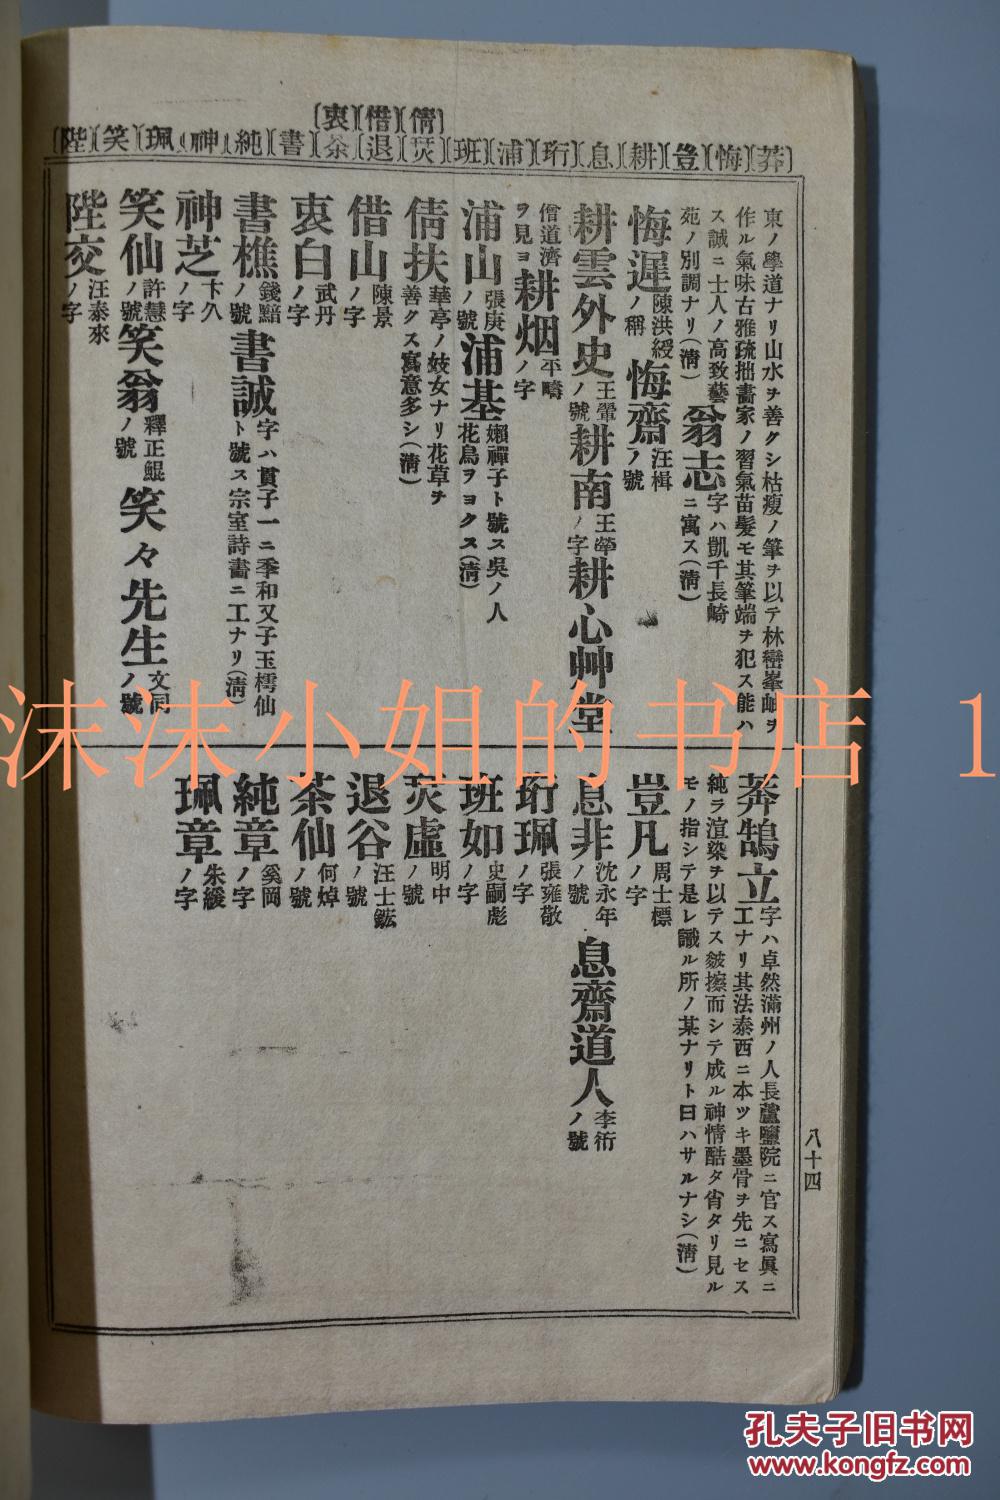 〔衷〕〔借〕〔倩〕
〔陛〕〔笑〕〔珮〕〔神〕〔純〕〔書〕〔茶〕〔退〕〔烎〕〔班〕〔浦〕〔珩〕〔息〕〔耕〕〔豈〕〔悔〕〔莽〕
東ノ學道ナリ山水ヲ善クシ枯瘦ノ筆ヲ以テ林巒峯岫ヲ
作ル氣味古雅疏拙畫家ノ習氣苗髮モ其筆端ヲ犯ス能ハ
ス誠ニ士人ノ高致藝
苑ノ別調ナリ(淸)
翁志 字ハ凱千長崎ニ寓ス(淸)
悔遲 陳洪綬ノ稱 悔齋 汪楫ノ號
耕雲外史 王翬ノ號 耕南 王犖ノ字 耕心艸堂
僧道濟ヲ見ヨ 耕烟 平疇ノ字
浦山 張庚ノ號 浦基 嬾禪子ト號ス吳ノ人花鳥ヲヨクス(淸)
倩扶 華亭ノ妓女ナリ花草ヲ善クス寫意多シ(淸)
借山 陳景ノ字
衷白 武丹ノ字
書樵 錢黯ノ號 書誠 字ハ貫子一ニ季和又子玉樗仙ト號ス宗室詩書ニ工ナリ(淸)
神芝 卞久ノ字
笑仙 許慧ノ號 笑翁 釋正鯤ノ號 笑々先生 文同ノ號
陛交 汪泰來ノ字
莽鵠立 字ハ卓然滿州ノ人長蘆鹽院ニ官ス寫眞ニ
工ナリ其法泰西ニ本ツキ墨骨ヲ先ニセス
純ラ渲染ヲ以テス皴擦而シテ成ル神情酷タ肖タリ見ル
モノ指シテ是レ識ル所ノ某ナリト曰ハサルナシ(淸)
豈凡 周士標ノ字
息非 沈永年ノ號 息齋道人 李衎ノ號
珩珮 張雍敬ノ字
班如 史嗣彪ノ字
烎虛 明中ノ號
退谷 汪士鋐ノ號
茶仙 何焯ノ號
純章 奚岡ノ字
珮章 朱緩ノ字
八十四
沫沫小姐的书店 1
孔夫子旧书网
www.kongfz.com